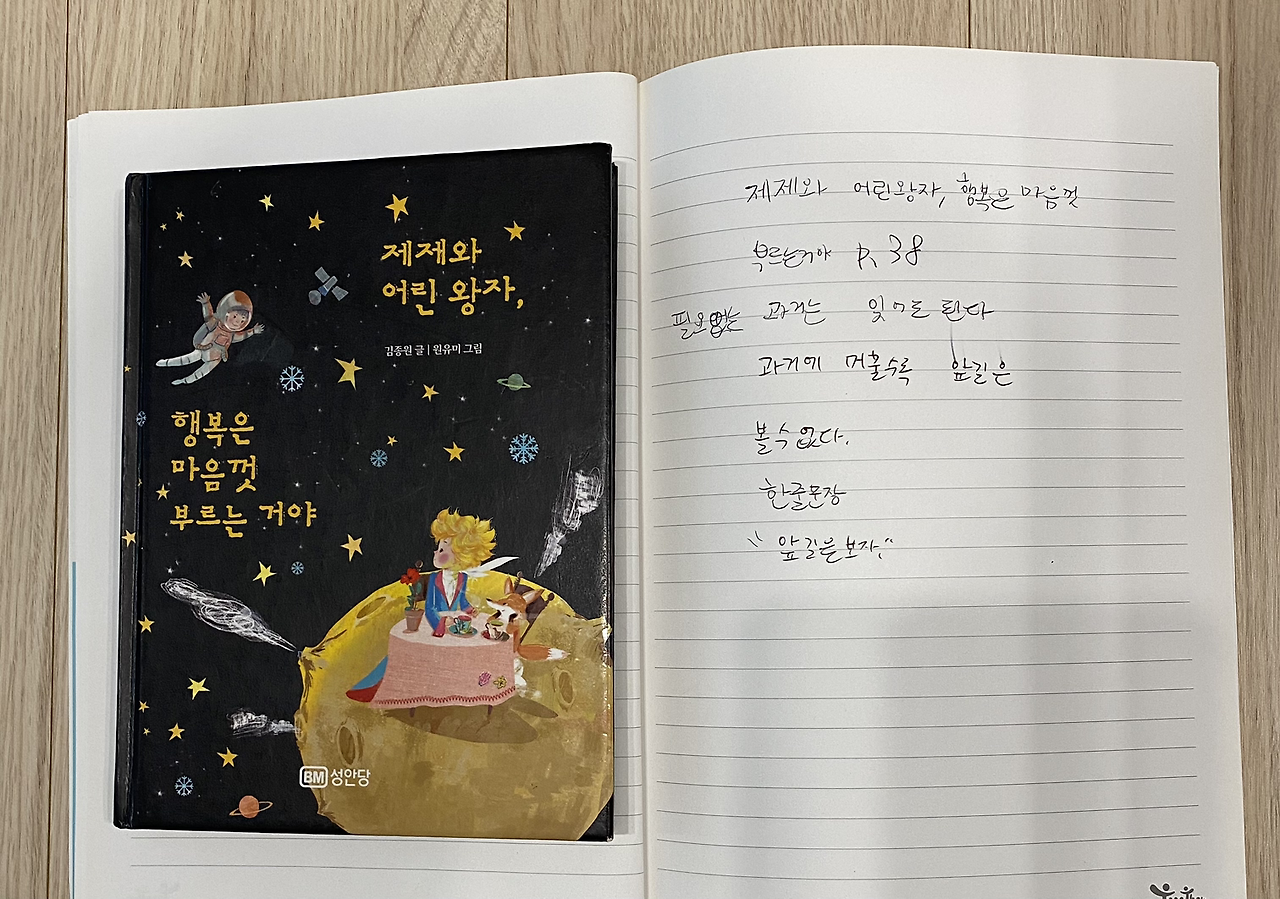 제제와
어린 왕자,
김종원 글 | 원유미 그림
행복은
마음껏
부르는 거야
BM 성안당
제제와 어린왕자, 행복은 마음껏
부르는거야 P. 38
필요없는 과거는 잊어도 된다
과거에 머물수록 앞길은
볼수없다.
한줄문장
"앞길을보자."